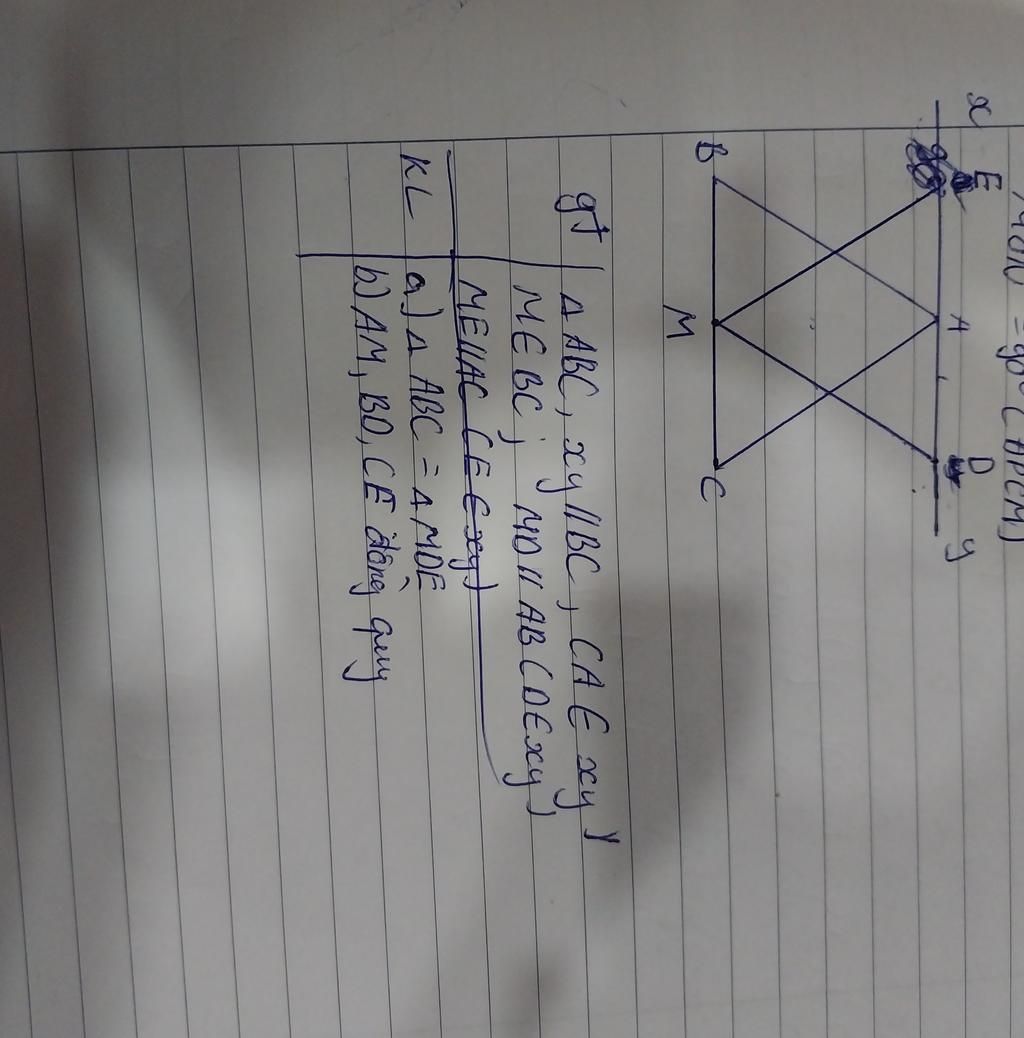 = 90° (ĐPCM)
x E A D y
B M C
gt Δ ABC, xy // BC, (A ∈ xy)
M ∈ BC; MD // AB (D ∈ xy)
ME // AC (E ∈ xy)
KL a) Δ ABC = Δ MDE
b) AM, BD, CE đồng quy